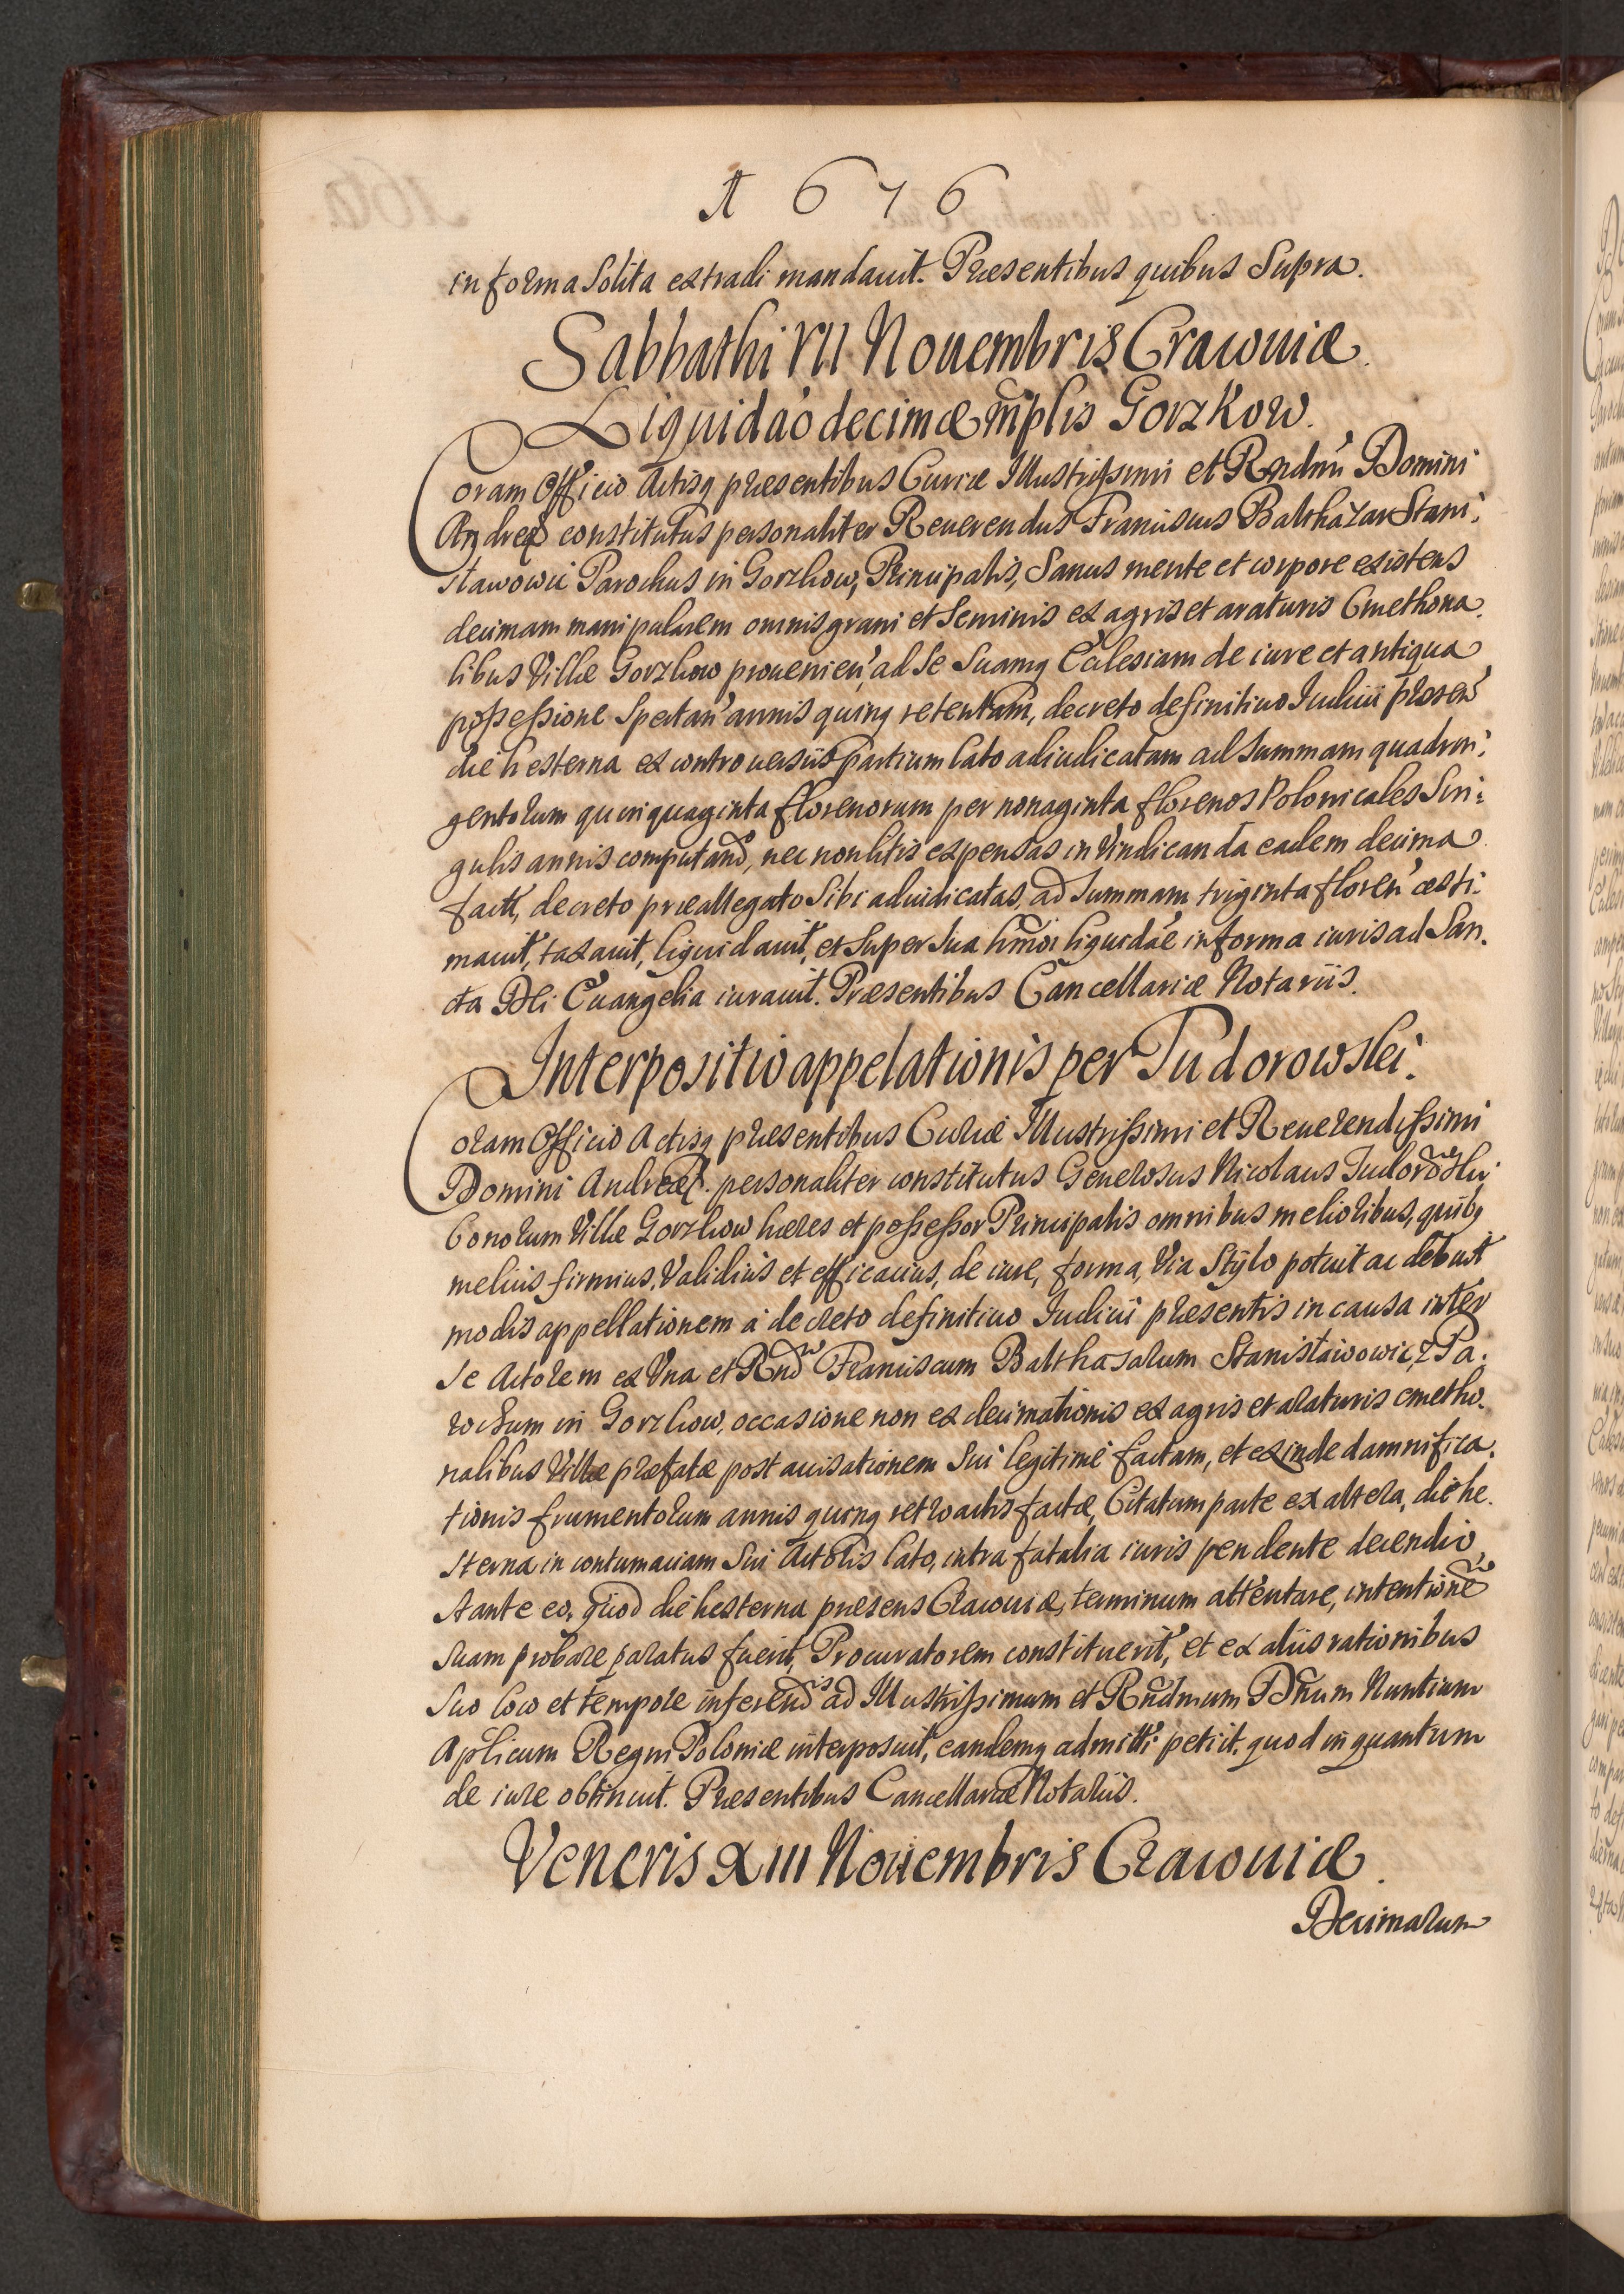 1676
in forma solita extradi mandauit. Præsentibus quibus Supra.
Sabbathi VII Nouembris Cracouiæ.
Liquidão decimæ m̃plis Gorzkow.
Coram Officio Actisq præsentibus Curiæ Illustrissimi et Rndmi Domini
Andreæ constitutus personaliter Reuerendus Franciscus Balthazar Stani:
sławowic Parochus in Gorzkow, Principalis, Sanus mente et corpore existens
decimam manipularem omnis grani et Seminis ex agris et araturis Cmethona
libus Villæ Gorzkow prouenien̄, ad Se Suamq Ecclesiam de iure et antiqua
possessione Spectan̄ annis quinq retentam, decreto definitiuo Iudicii præsen̄
die hesterna ex controuersiis partium lato adiudicatam ad Summam quadrin:
gentorum quinquaginta florenorum per nonaginta florenos Polonicales Sin:
gulis annis computand, nec non litis expensas in Vindicanda eadem decima
fact, decreto præallegato Sibi adiudicatas, ad Summam triginta floren̄ æsti:
mauit, taxauit, liquidauit, et Super Sua hm̃oi liquidãe in forma iuris ad San.
cta Dei Euangelia iurauit. Præsentibus Cancellariæ Notariis.
Interpositio appelationis per Tudorowski.
Coram Officio Actisq præsentibus Curiæ Illustrissimi et Reuerendissimi
Domini Andreæ personaliter constitutus Generosus Nicolaus Tudorowski
bonorum Villæ Gorzkow hæres et possessor Principalis omnibus melioribus, quibq
melius firmius, Validius et efficacius, de iure, forma, Via Stylo potuit ac debuit
modis appellationem a decreto definitiuo Iudicii præsentis in causa inter
Se Actorem ex Vna et Rnd Franciscum Balthasarum Stanisławowicz Pa:
rochum in Gorzkow, occasione non ex decimationis ex agris et araturis cmetho.
nalibus Villæ præfatæ post auisationem Sui legitime factam, et exinde damnifica:
tionis frumentorum annis quinq retroactis factæ, Citatum parte ex altera, die he.
sterna in contumaciam Sui Actoris lato, intra fatalia iuris pendente decendio
stante eo, quod die hesterna præsens Cracouiæ, terminum attentare, intentione
suam probare paratus fuerit, Procuratorem constituerit, et ex aliis rationibus
Suo loco et tempore inferend ad Illustrissimum et Rndmum Dnum Nuntium
Aplicum Regni Poloniæ interposuit, eandemq admitti petiit. quod in quantum
de iure obtinuit. Præsentibus Cancellariæ Notariis.
Veneris XIII Nouembris Cracouiæ.
Decimarum